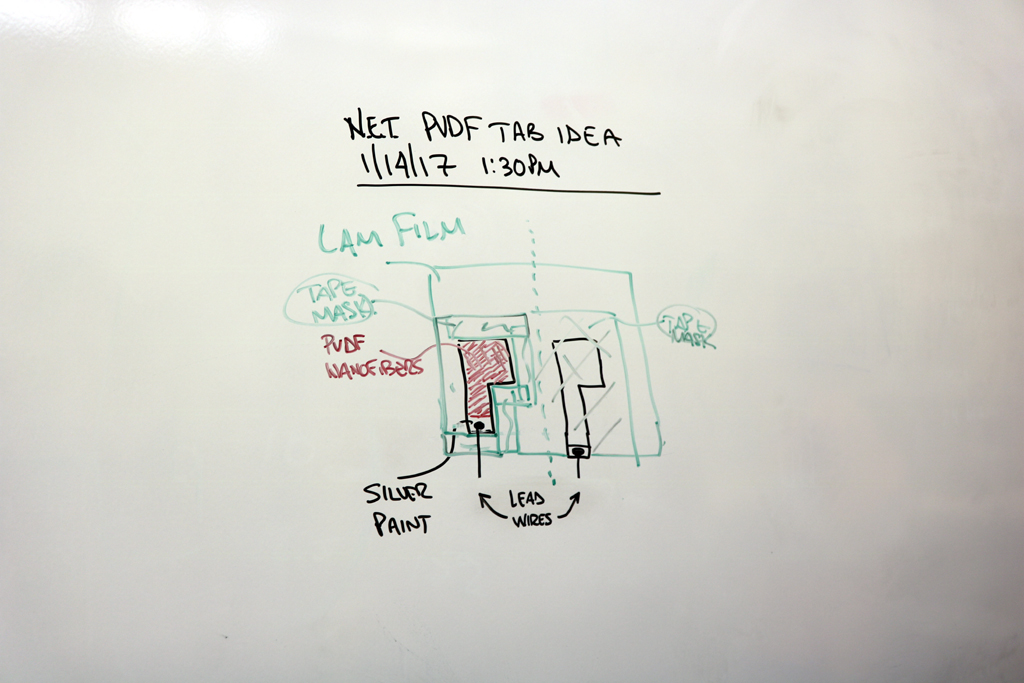 NET PVDF TAB IDEA
1/14/17 1:30PM
LAM FILM
TAPE
MASK
TAPE
MASK
PVDF
NANOFIBERS
SILVER
PAINT
LEAD
WIRES